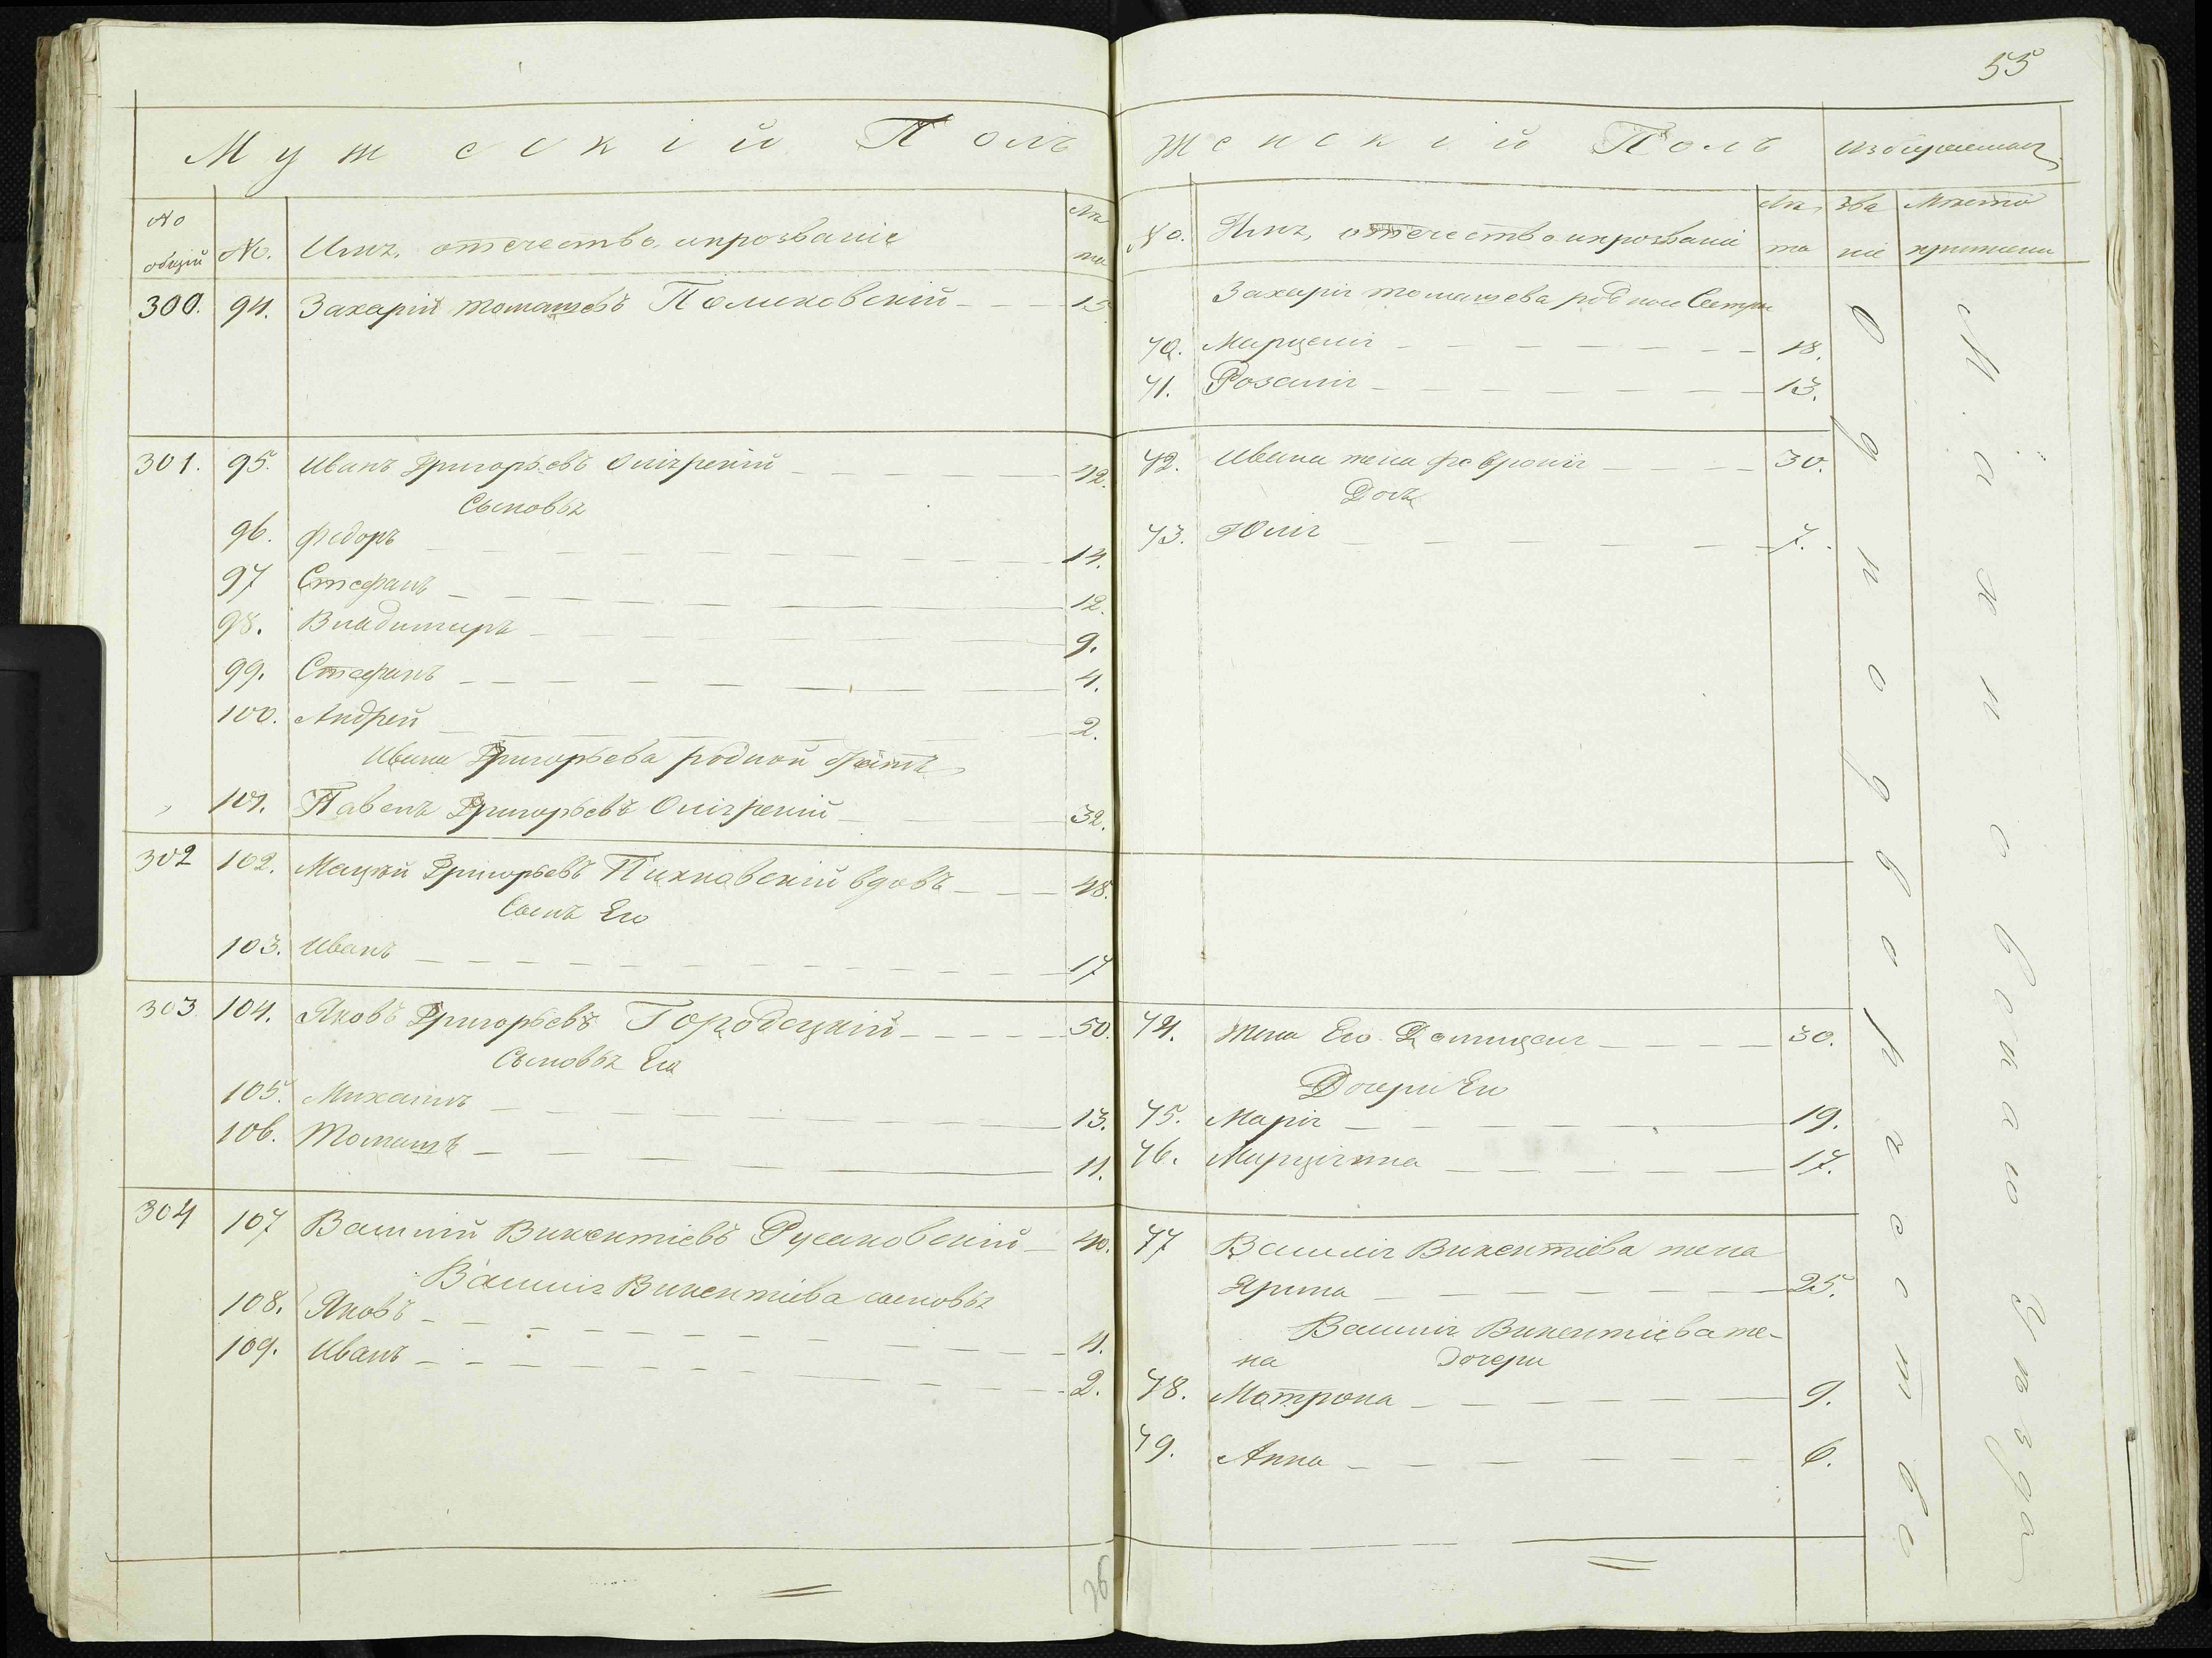 55
Мужескій Полъ
№ общій
№.
Имя, отчество, ипрозваніе
Лѣта
300. 94. Захарій томашевъ 15
301. 95. Иванъ Григорьевъ 42.
Сыновья
96. Федоръ 14.
97 Стефанъ 12.
98. Владимиръ 9.
99. Стефанъ 4.
100. Андрей 2.
Ивана Григорьева родной братъ
101. Павелъ Григорьевъ 32.
302 102. Мацѣй Григорьевъ Пихновскій вдовъ 48.
Сынъ Его
103. Иванъ 17
303 104. Яковъ Григорьевъ Городецкій 50.
Сыновья Его
105. Михаилъ 13.
106. Томашъ 11.
304 107 Василій Викентіевъ Русаковскій 40.
Василія Викентіева сыновья
108. Яковъ 4.
109. Иванъ 2.
Женскій Полъ
№.
Имя, отчество ипрозвані
Лѣта
Званіе
Захарія томашева родные Сестры
70. Марцелія 18.
71. Розалія 13.
72. Ивана жена февронія 30.
Дочь
73. Юлія 7.
74. Жена Его Домицеля 30.
Дочери Его
75. Марія 19.
76. Марціянна 17.
77 Василія Викентіева жена
Ярина 25.
Василія Викентіева же-
на дочери
78. Матрона 9.
79. Анна 6.
Однодворческое
Махновскаго Уѣзда